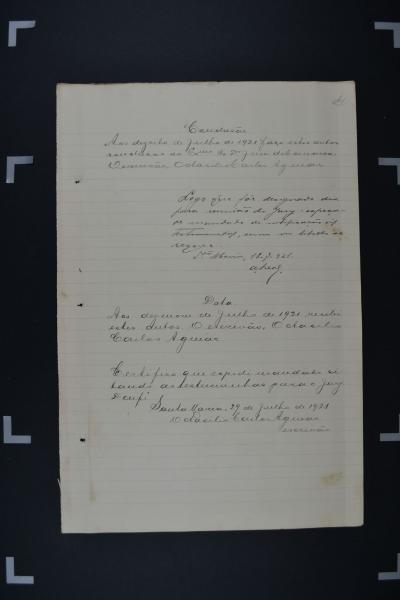 Conclusão
Aos dezoito de Julho de 1921 faço estes autos
conclusos ao Exmo Dr Juiz da Comarca.
O escrivão, Octacilio Carlos Aguiar
Logo que fôr designado dia
para reunião do Jury
os mandados de intimação
testemunhas, como
requer.
Sta Maria, 18.7.921.
Data
Aos dezenove de Julho de 1921 recebi
estes autos. O escrivão, Octacilio
Carlos Aguiar
Certifico que expedi mandado ci
tando as testemunhas para o jury
Dou fé
Santa Maria, 29 de Julho de 1921
Octacilio Carlos Aguiar
escrivão